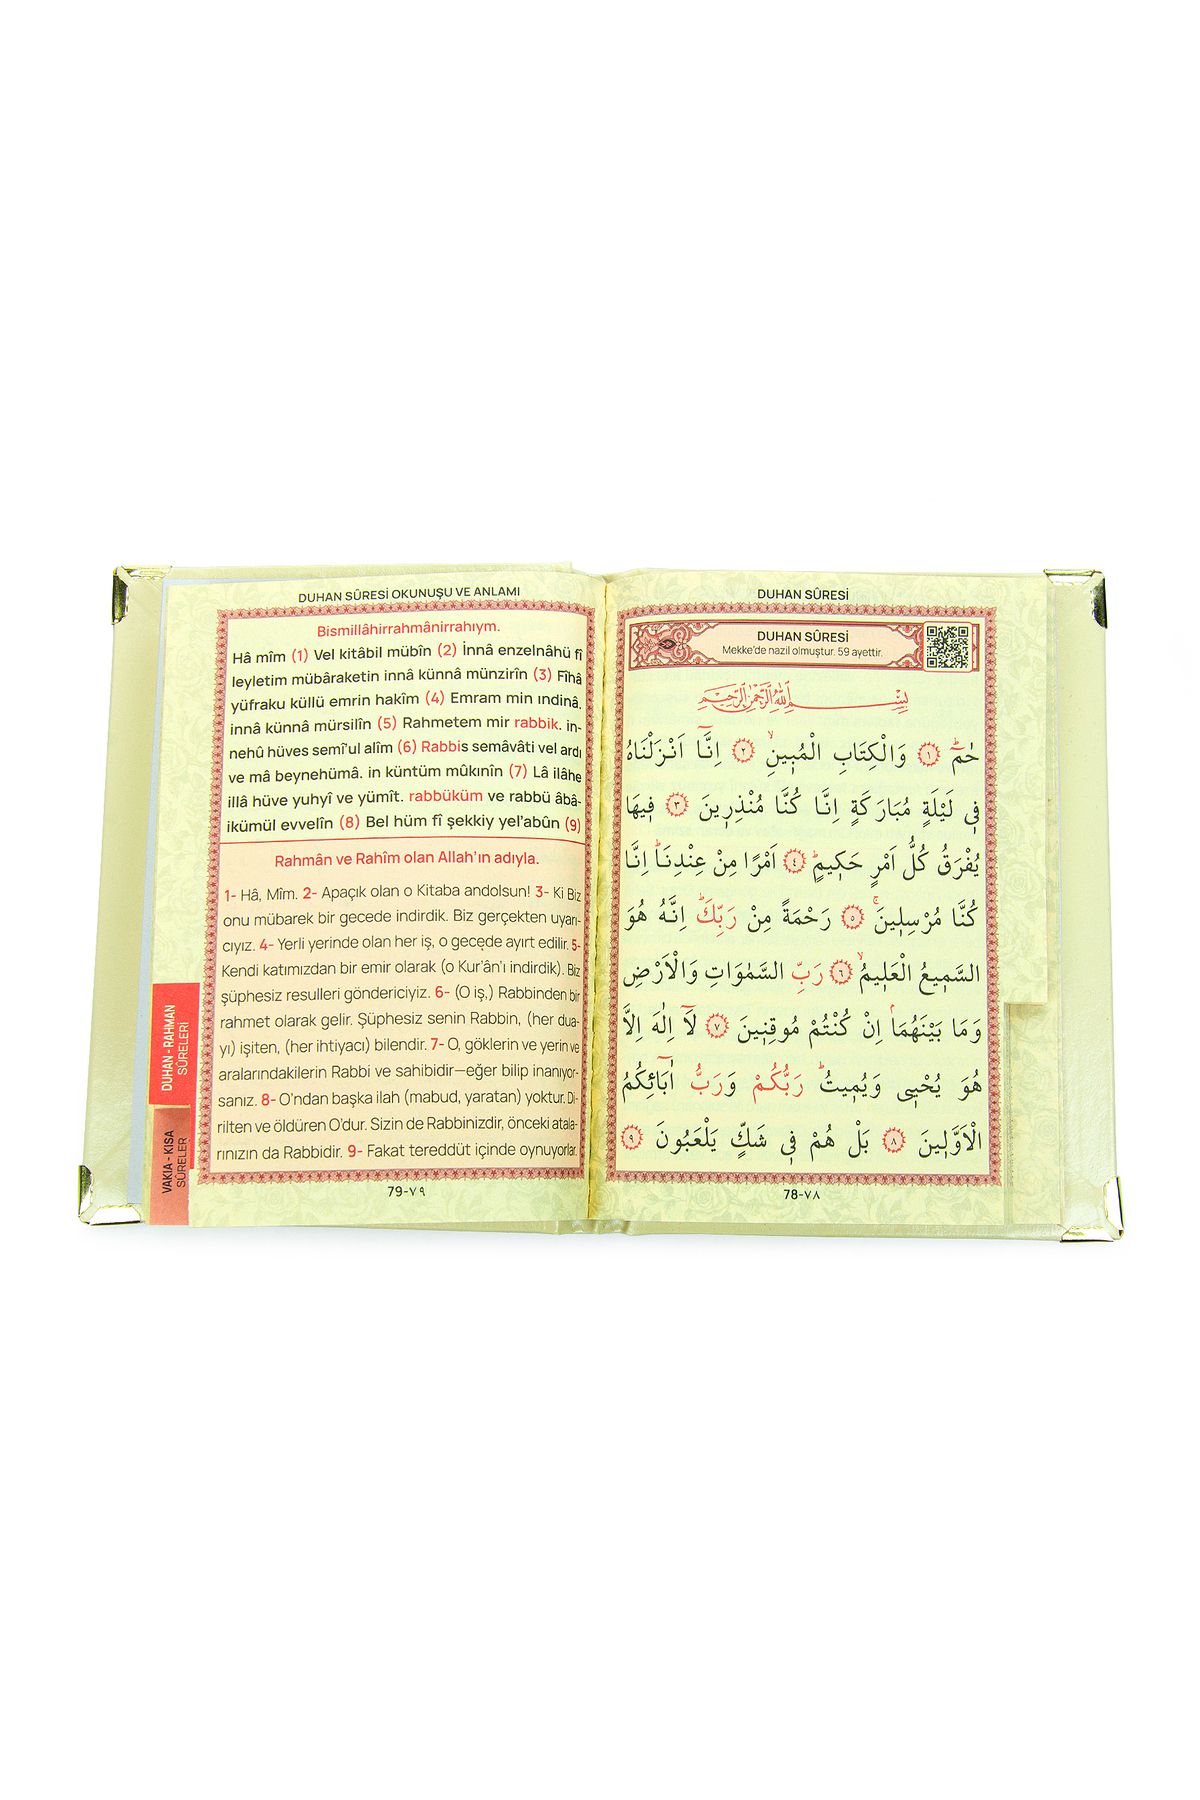 DUHAN SÛRESİ OKUNUŞU VE ANLAMI
Bismillâhirrahmânirrahıym.
Hâ mîm (1) Vel kitâbil mübîn (2) İnnâ enzelnâhü fî
leyletim mübâraketin innâ künnâ münzirîn (3) Fîhâ
yüfraku küllü emrin hakîm (4) Emram min ındinâ.
innâ künnâ mürsilîn (5) Rahmetem mir rabbik. in-
nehû hüves semî'ul alîm (6) Rabbis semâvâti vel ardı
ve mâ beynehümâ. in küntüm mûkınîn (7) Lâ ilâhe
illâ hüve yuhyî ve yümît. rabbüküm ve rabbü âbâ-
ikümül evvelîn (8) Bel hüm fî şekkiy yel'abûn (9)
Rahmân ve Rahîm olan Allah'ın adıyla.
1- Hâ, Mîm. 2- Apaçık olan o Kitaba andolsun! 3- Ki Biz
onu mübarek bir gecede indirdik. Biz gerçekten uyarı-
cıyız. 4- Yerli yerinde olan her iş, o gecede ayırt edilir. 5-
Kendi katımızdan bir emir olarak (o Kur'ân'ı indirdik). Biz
şüphesiz resulleri göndericiyiz. 6- (O iş,) Rabbinden bir
rahmet olarak gelir. Şüphesiz senin Rabbin, (her dua-
yı) işiten, (her ihtiyacı) bilendir. 7- O, göklerin ve yerin ve
aralarındakilerin Rabbi ve sahibidir—eğer bilip inanıyor-
sanız. 8- O'ndan başka ilah (mabud, yaratan) yoktur. Di-
rilten ve öldüren O'dur. Sizin de Rabbinizdir, önceki atala-
rınızın da Rabbidir. 9- Fakat tereddüt içinde oynuyorlar.
79-٧٩
DUHAN - RAHMAN
SÛRELERİ
VAKIA - KISA
SÛRELER
DUHAN SÛRESİ
DUHAN SÛRESİ
Mekke'de nazil olmuştur. 59 ayettir.
بِسْمِ اللّٰهِ الرَّحْمٰنِ الرَّحِيمِ
حٰمٓ ۚ ﴿١﴾ وَالْكِتَابِ الْمُبٖينِ ۙ ﴿٢﴾ اِنَّٓا اَنْزَلْنَاهُ
فٖي لَيْلَةٍ مُبَارَكَةٍ اِنَّا كُنَّا مُنْذِرٖينَ ﴿٣﴾ فٖيهَا
يُفْرَقُ كُلُّ اَمْرٍ حَكٖيمٍ ۙ ﴿٤﴾ اَمْرًا مِنْ عِنْدِنَا ۜ اِنَّا
كُنَّا مُرْسِلٖينَ ۚ ﴿٥﴾ رَحْمَةً مِنْ رَبِّكَ ۜ اِنَّهُ هُوَ
السَّمٖيعُ الْعَلٖيمُ ۙ ﴿٦﴾ رَبِّ السَّمٰوَاتِ وَالْاَرْضِ
وَمَا بَيْنَهُمَا ۢ اِنْ كُنْتُمْ مُوقِنٖينَ ﴿٧﴾ لَٓا اِلٰهَ اِلَّا
هُوَ يُحْيٖي وَيُمٖيتُ ۜ رَبُّكُمْ وَرَبُّ اٰبَٓائِكُمُ
الْاَوَّلٖينَ ﴿٨﴾ بَلْ هُمْ فٖي شَكٍّ يَلْعَبُونَ ﴿٩﴾
78-٧٨